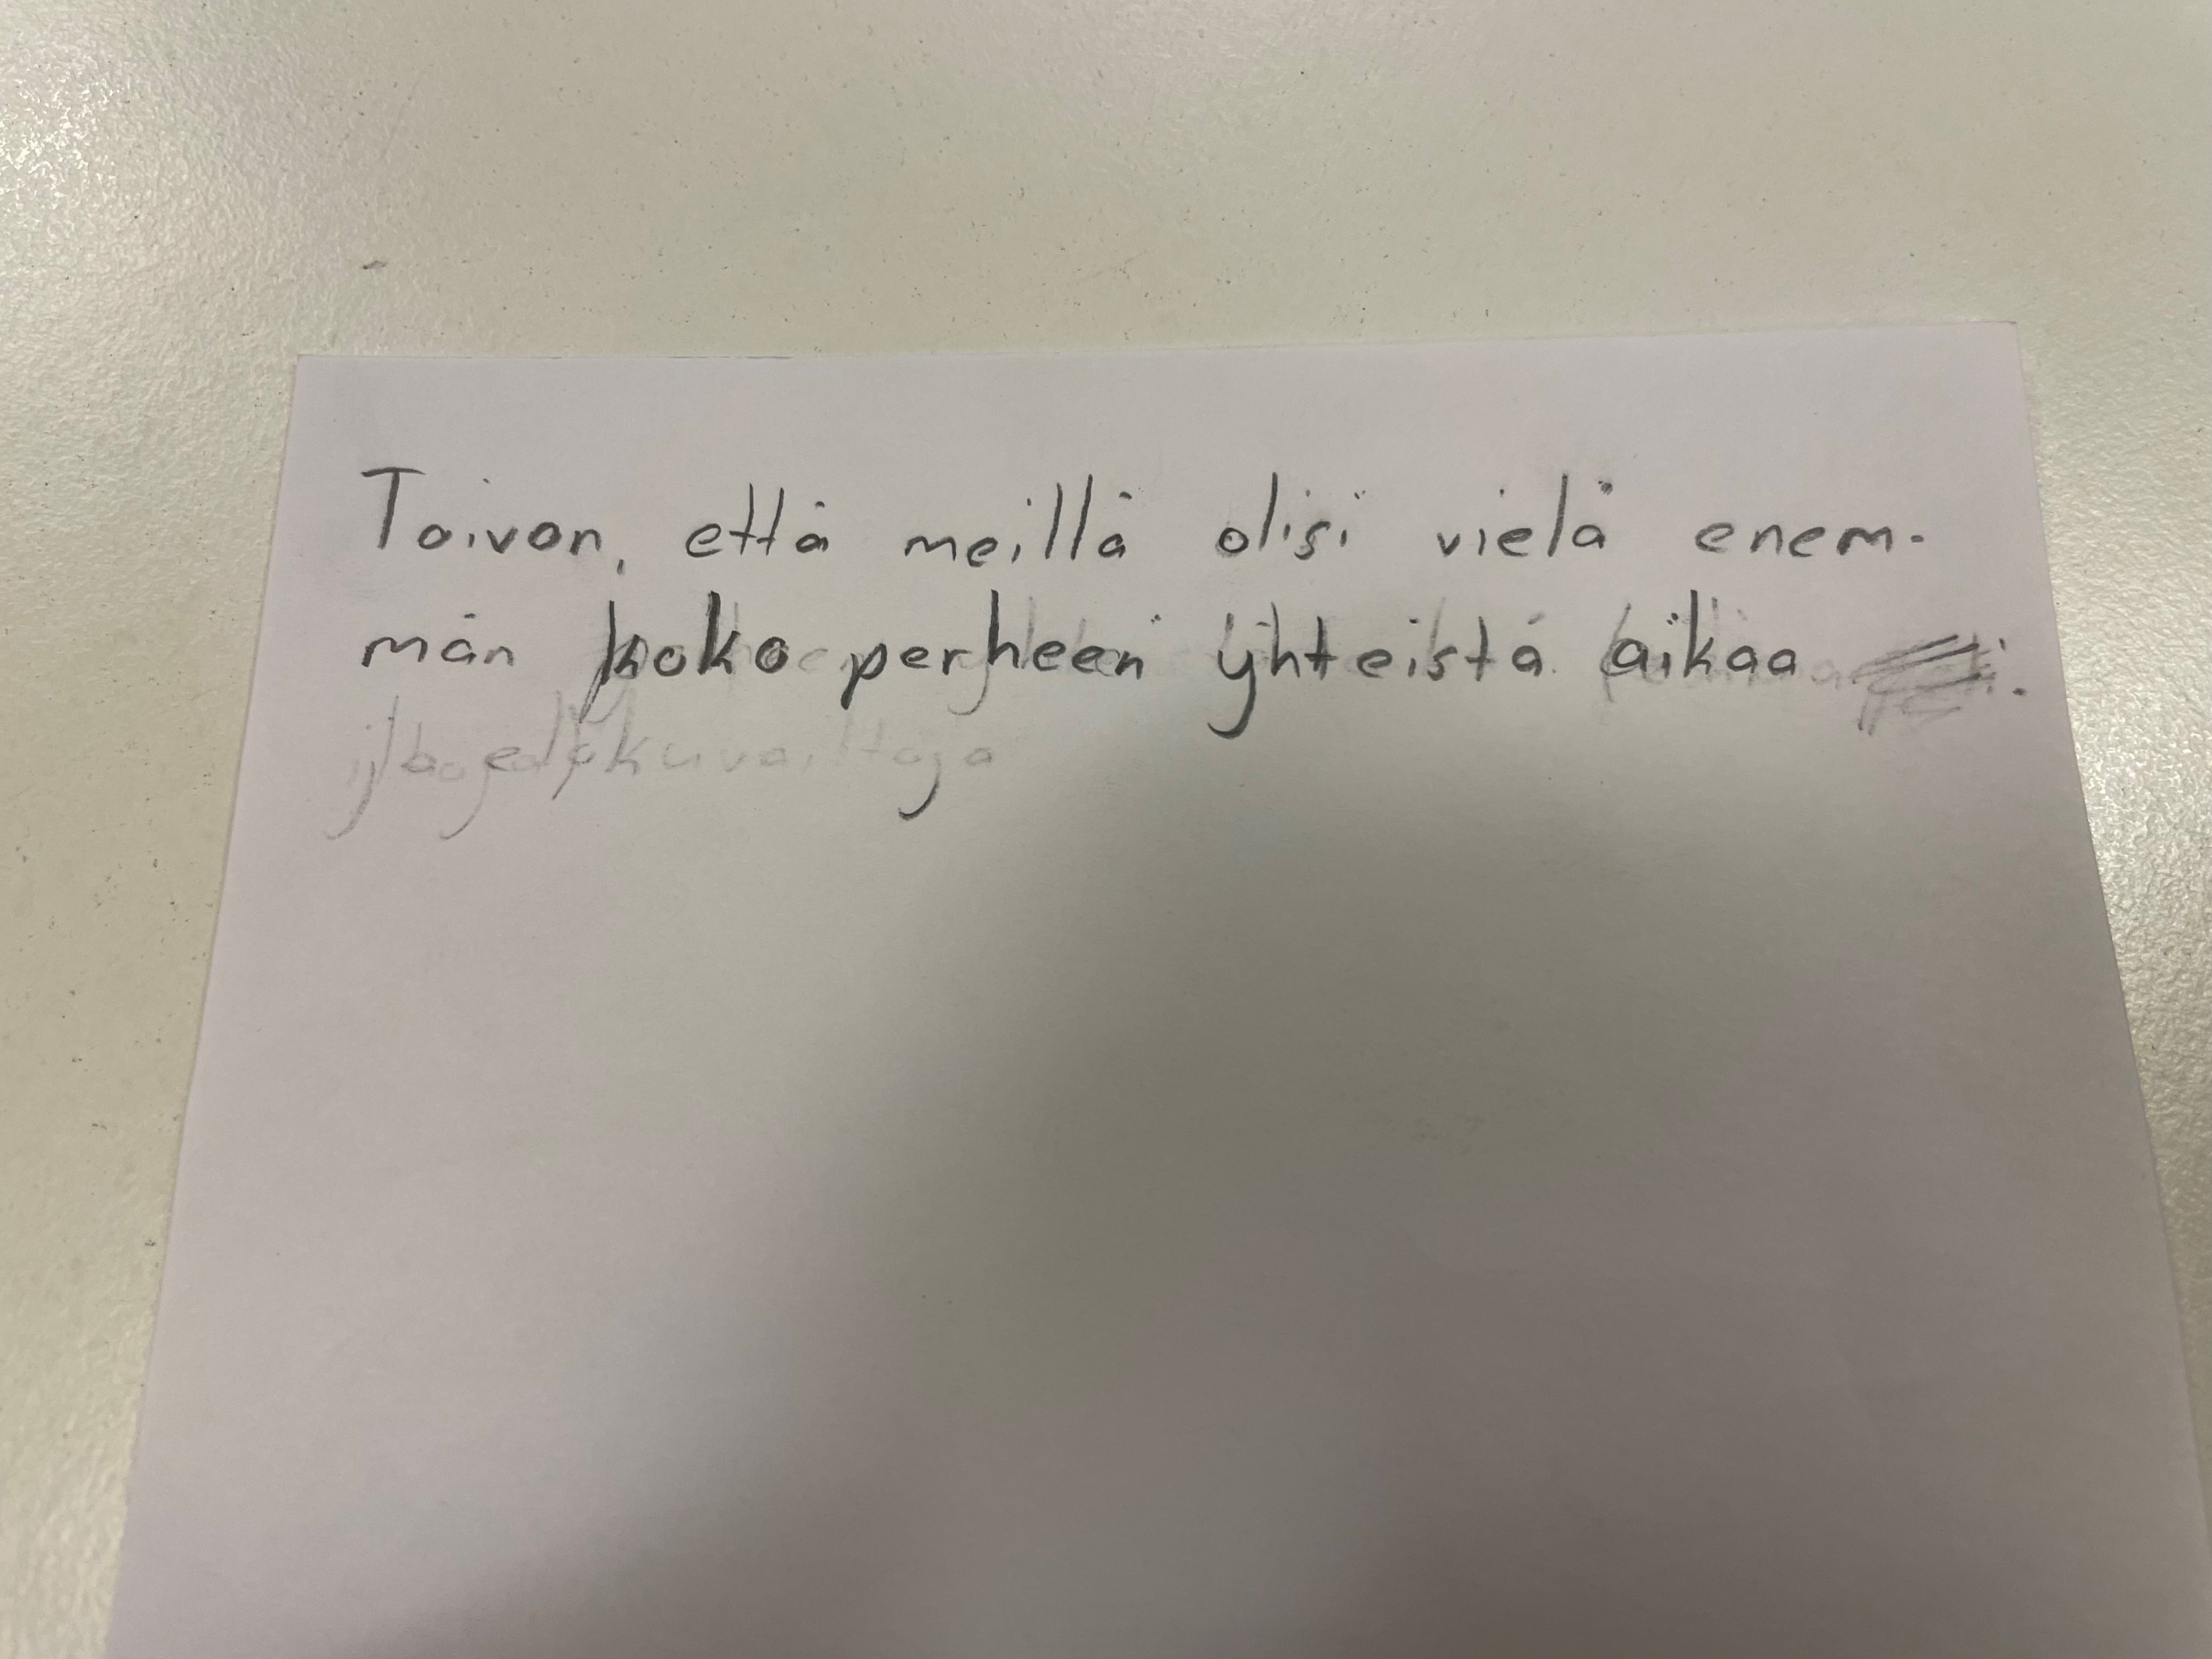 Toivon, että meillä olisi vielä enem-
män koko perheen yhteistä aikaa.